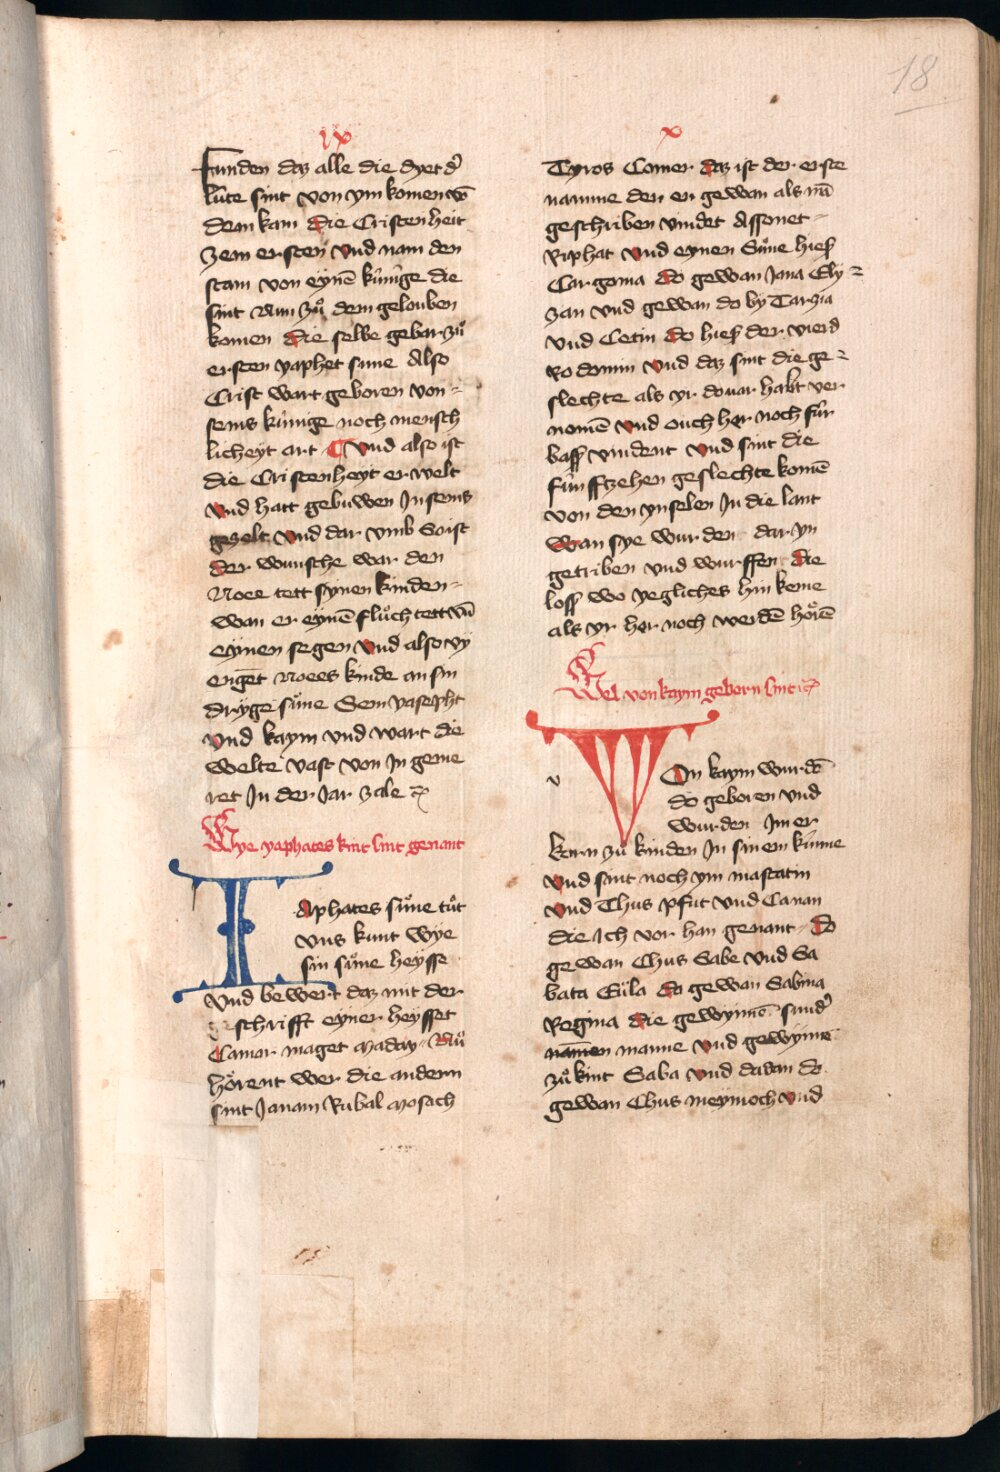 18
ix
funden daz alle die dyet dˀ
lúte sint von ym komen vñ
dem kam die Cristenheit
zem ersten Vnd nam den
stam von eynē kúnige die
sint Nun zuͦ dem gelouben
komen die selbe gebar zuͦ
ersten yaphet sune Also
Crist wart geboren von⸗
sems kúnige noch mensch
licheyt art Vnd also ist
die Cristenheyt erwelt
Vnd hatt gebuwen Jn sems
gezelt Vnd dar vmb So ist
der wunsche war den
Noee tett synen kinden⸗
wan er eynē fluͦch tett vñ
eynen segen Vnd also vz
engēt Noees kinde an sin
dryge suͤne Sem yasepht
Vnd kaym vnd wart die
welte vast von Jn geme
ret Jn der Jar zale
Wye yaphetes kint sint genant
Iaphetes suͤne tuͦt
vns kunt wye
sin suͤne heysse
Vnd bewert daz mit der
geschrifft eyner heysset
Camar maget maday Nuͦ
hoͤrent wer die andern
sint Janam Rubal mosach
x
Tyros Comer daz ist der erste
namme den er gewan als mā
geschriben vindet Assonet⸗
Riphat Vnd eynen Suͤne hieß
Cargoma do gewan Jana Ely⸗
zan vnd gewan do by Tarzia
Vnd Cetin do hieß der vierd
Rodomin Vnd daz sint die ge⸗
slechte als yr do vor habt ver
nomē Vnd ouch her noch fúr
baß vindent Vnd sint die
fúnffzehen geslechte komē
von den ynselen Jn die lant
Wan sye wurden dar yn
getriben vnd wurffen die
loss wo yegliches hin keme
als yr her noch werdē hoͤrē
Wel von kaym gebern sint
v
Von kaym wurdē
do geboren vnd
wurden Jm er
korn zuͦ kinden Jn sinem kúnne
Vnd sint noch ym mastatin
Vnd Thus pfut vnd Canan
die Jch vor han genant do
gewan Chus Sabe vnd Sa
bata Eúla da gewan Sabina
Regina die gewynnē sundˀ
namen manne Vnd gewynne
zuͦ kint Saba Vnd dadan do
gewan Chus meymoch Vnd